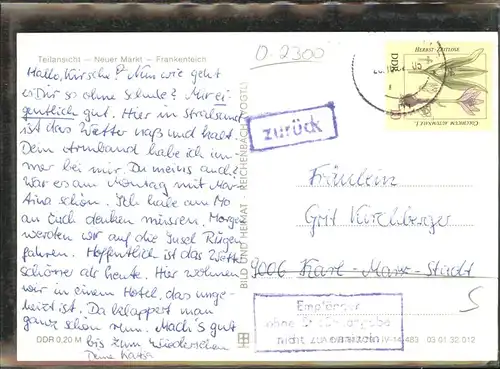 D-2300
Teilansicht — Neuer Markt — Frankenteich
Hallo, Kirsche! Nun wie geht
es Dir so ohne Schule? Mir ei-
gentlich gut. Hier in Stralsund
ist das Wetter naß und kalt.
Dein Armband habe ich im-
mer bei mir. Du meins auch?
War es am Montag mit Mar-
tina schön. Ich habe am Mo
an Euch denken müssen. Morgen
werden wir auf die Insel Rügen
fahren. Hoffentlich ist das Wetter
schöner als heute. Hier wohnen
wir in einem Hotel, das unge-
heizt ist. Da bekappert man
ganz schön rum. Mach's gut
bis zum Wiedersehen
Deine
DDR 0,20 M
BILD UND HEIMAT REICHENBACH (VOGTL)
zurück
DDR
HERBST-ZEITLOSE
COLCHICUM AUTUMNALE L.
Fräulein
Grit Kirchberger
9006 Karl-Marx-Stadt
Empfänger
ohne
nicht zu ermitteln
IV-14-483 03 01 32 012